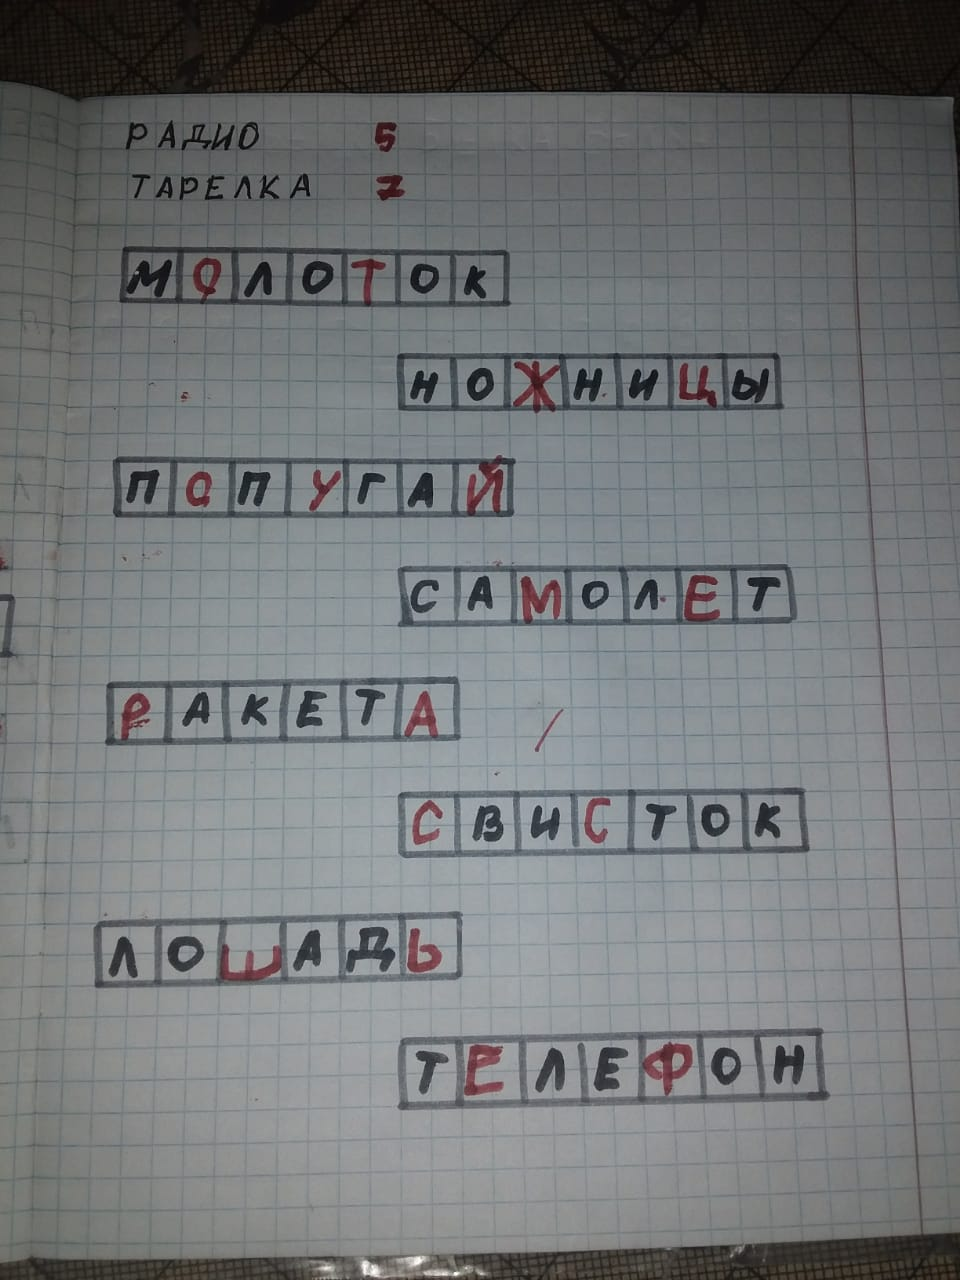 РАДИО 5
ТАРЕЛКА 7
МОЛОТОК
НОЖНИЦЫ
ПОПУГАЙ
САМОЛЕТ
РАКЕТА
СВИСТОК
ЛОШАДЬ
ТЕЛЕФОН